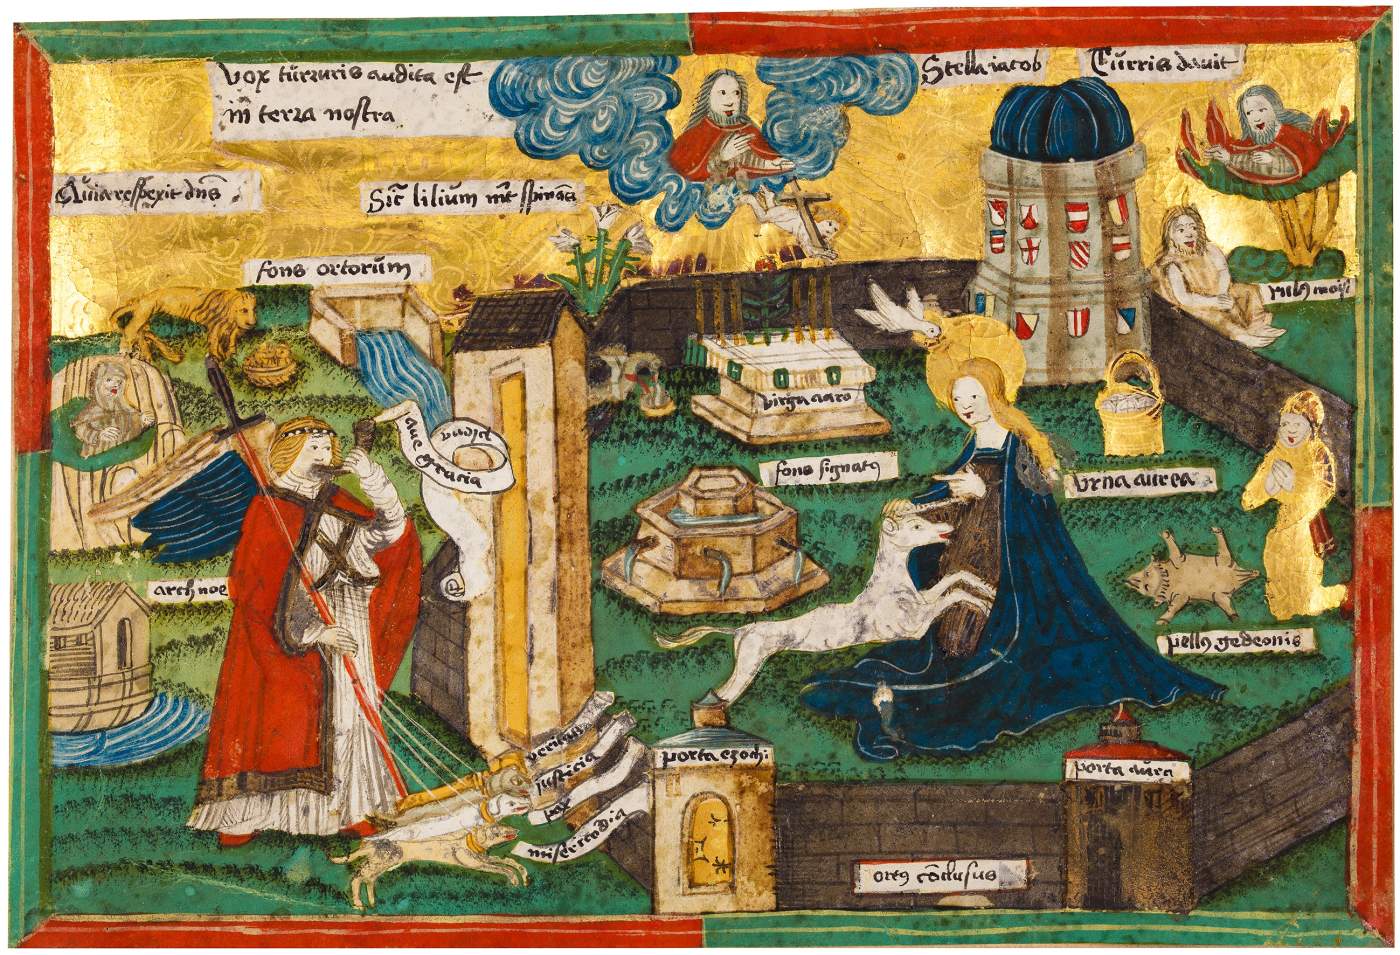 vox turturis audita est
in terra nostra
Quia respexit dns
Sic lilium int spinas
Stella iacob
Turris dauit
fons ortorum
rub9 moisi
virga aaro
ave gracia
fons signat9
vrna aurea
arch noe
pell9 gedeonis
veritas
justicia
pax
misericordia
porta ezechi
porta aurea
ort9 conclusus